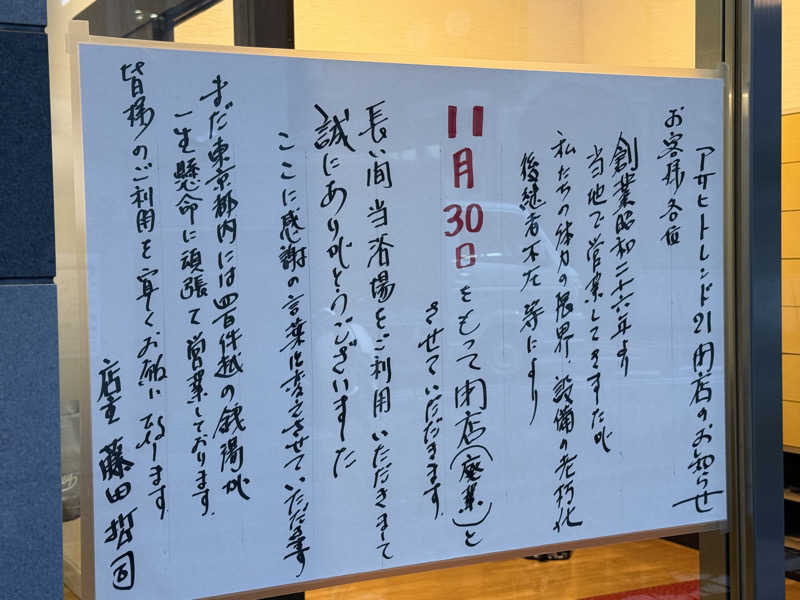 アサヒトレンド21 閉店のお知らせ
お客様各位
創業昭和二十六年より
当地で営業してきましたが
私たちの体力の限界、設備の老朽化
後継者不在 等により
11月30日をもって閉店(廃業)と
させていただきます
長い間当浴場をご利用いただきまして
誠にありがとうございました
ここに感謝の言葉に変えさせていただきます
まだ東京都内には四百件越の銭湯が
一生懸命に頑張て営業しております
皆様のご利用を宜しくお願い致します
店主 藤田哲司